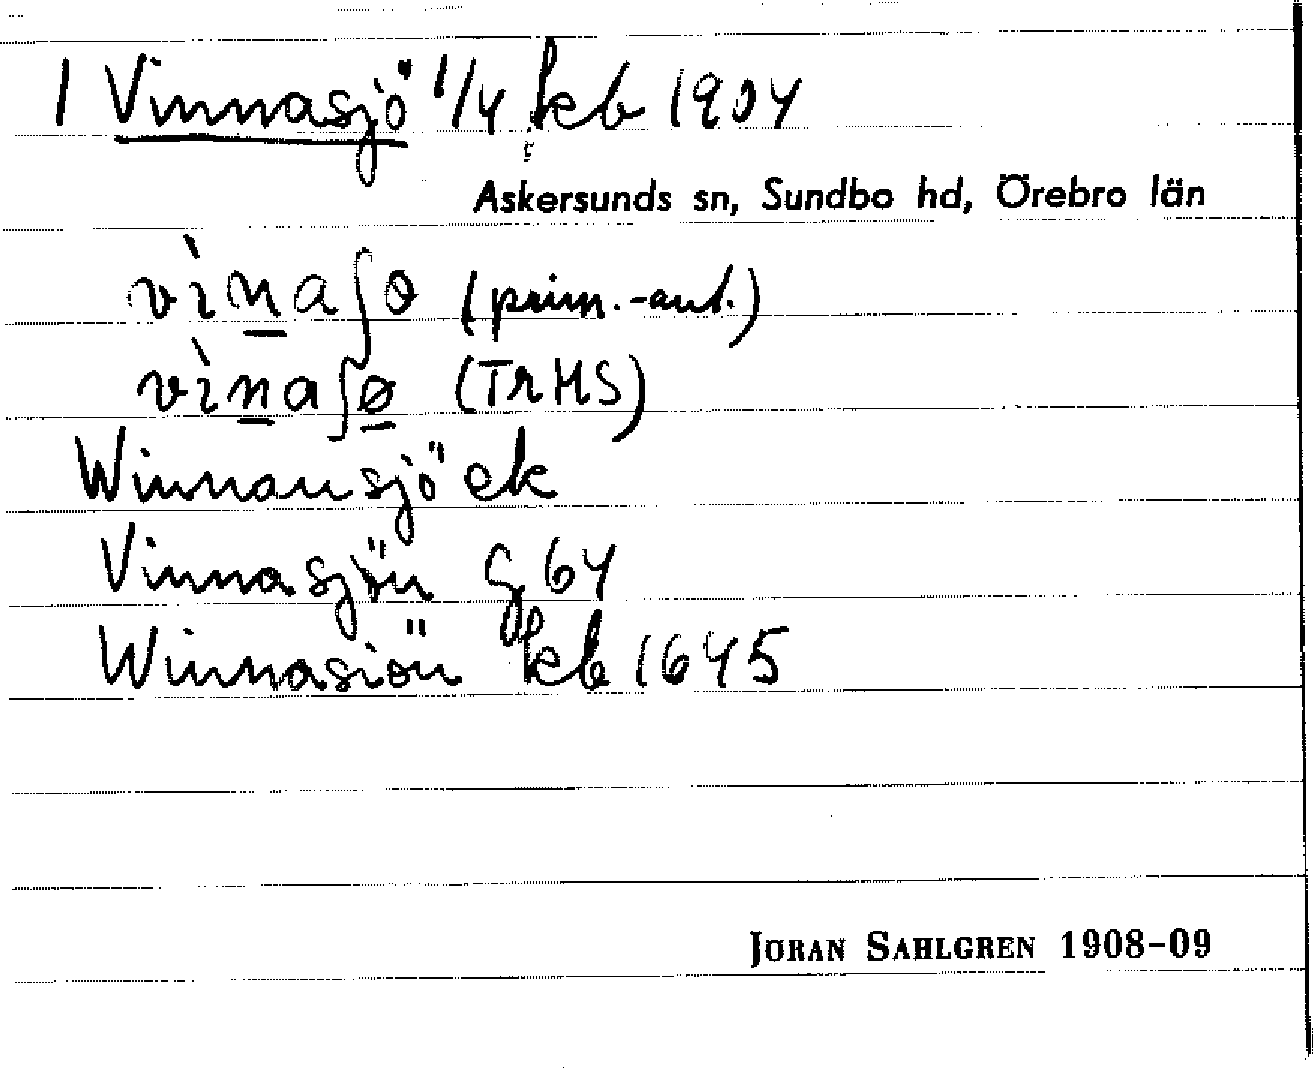 1 Vinnasjö 1/4 kb 1904
Askersunds sn, Sundbo hd, Örebro län
vìnaʃo (prim.-ant.)
vìnaʃø (TrHS)
Winnansjö ek
Vinnasjön G 64
Winnasiön kb 1645
JORAN SAHLGREN 1908-09